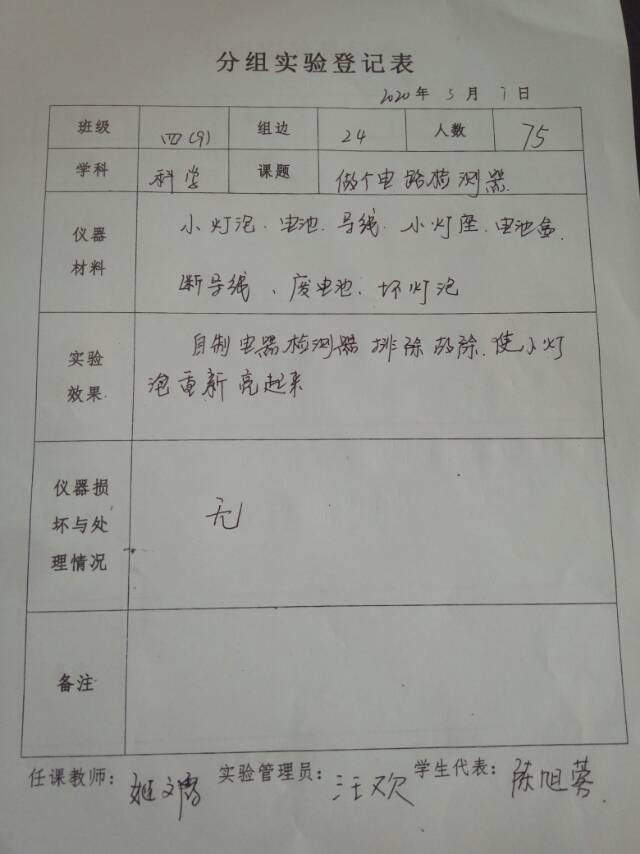 分组实验登记表
2020年 5月 7日
班级 四(9) 组边 24 人数 75
学科 科学 课题 做个电路检测器
仪器材料 小灯泡、电池、导线、小灯座、电池盒、
断导线、废电池、坏灯泡
实验效果 自制电器检测器排除故除,使小灯
泡重新亮起来
仪器损坏与处理情况 无
备注
任课教师: 姬文 实验管理员: 汪欢 学生代表: 陈旭蓉